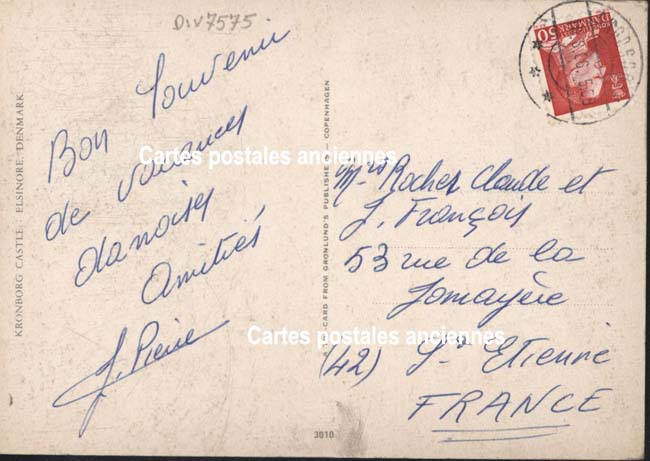 Div7575
KRONBORG CASTLE. ELSINORE. DENMARK
Bon Souvenir
de vacances
danoises
Amitiés
J. Pierre
Cartes postales anciennes
CARD FROM GRØNLUND'S PUBLISHERS — COPENHAGEN
DANMARK
50
Mrs Rocher Claude et
J. François
53 rue de la
Jomayère
Cartes postales anciennes
(42) St Etienne
FRANCE
3010